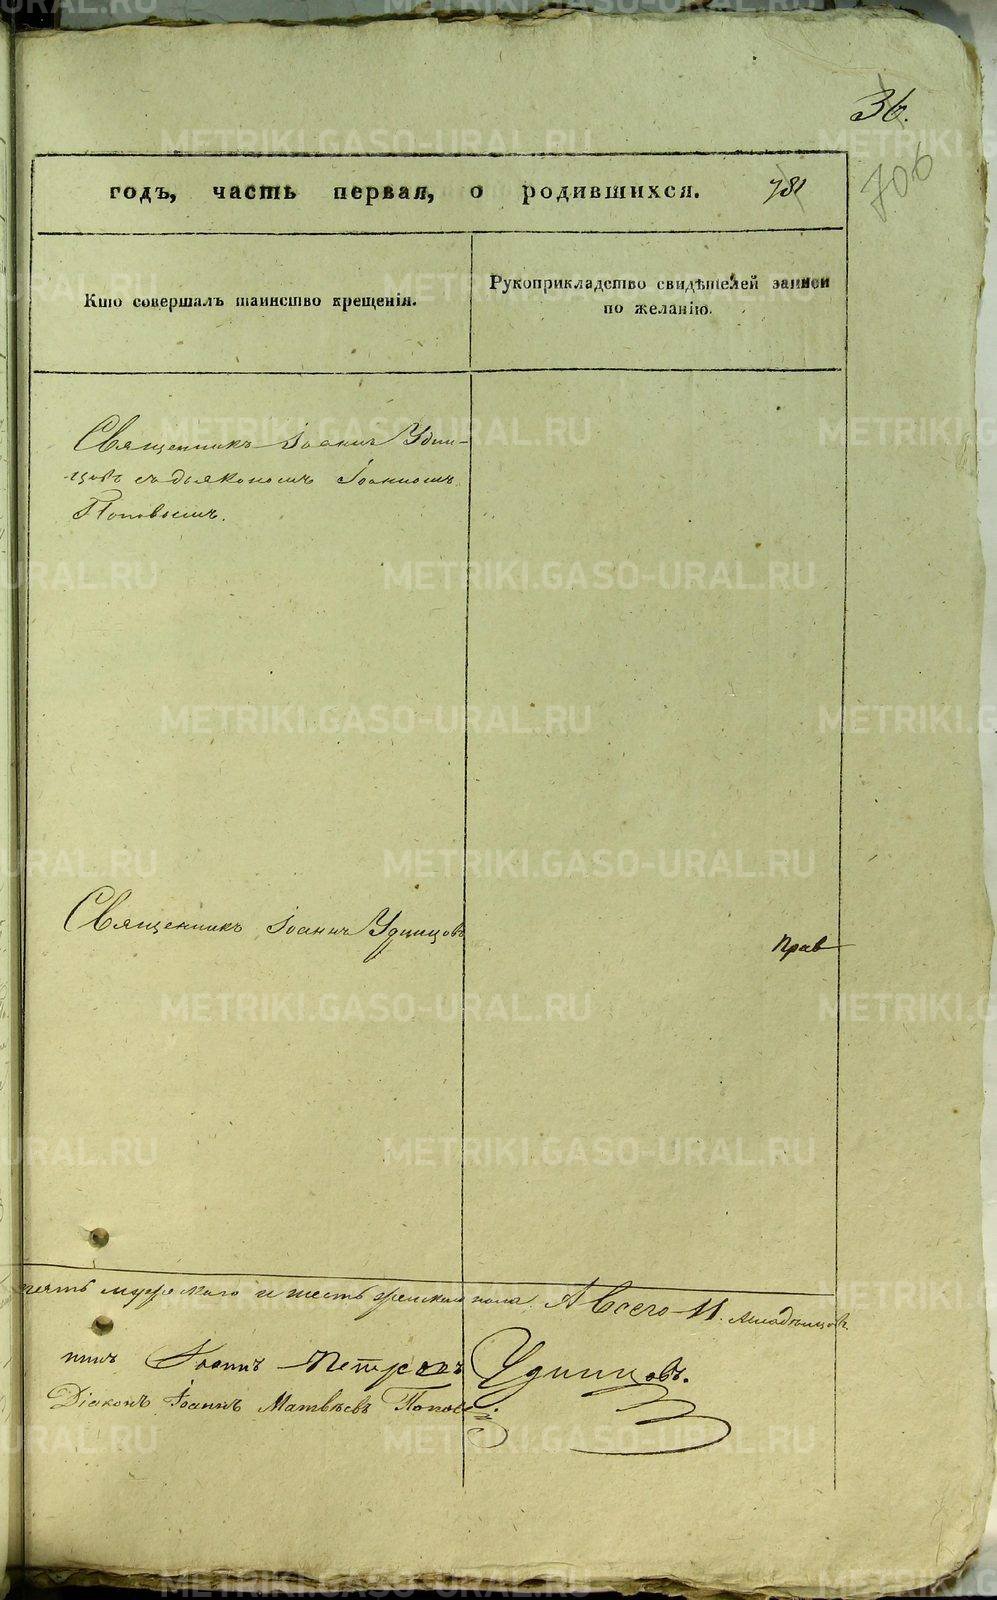 36.
706
годъ, часть первая, о родившихся. 781
Кто совершалъ таинство крещенія.
Рукоприкладство свидѣтелей записи
по желанію.
Священникъ Іоаннъ Удин-
цовъ съ дьякономъ Іоанномъ
Поповымъ.
Священникъ Іоаннъ Удинцовъ
Прав
пять мужскаго и шесть женскаго пола. А всего 11. младенцовъ.
никъ Іоаннъ Петровъ Удинцовъ.
Діаконъ Іоаннъ Матвѣевъ Поповъ
METRIKI.GASO-URAL.RU